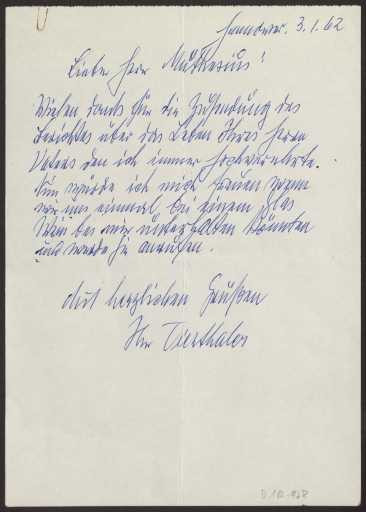 Hannover. 3.1.62
Lieber Herr Muthesius!
Vielen Dank für die Zusendung des
Berichtes über das Leben Ihres Herrn
Vaters den ich immer hochverehrte.
Nun würde ich mich freuen wenn
wir uns einmal bei einem Glas
Wein bei mir unterhalten könnten
und werde Sie anrufen.
Mit herzlichen Grüßen
Ihr Vierthaler